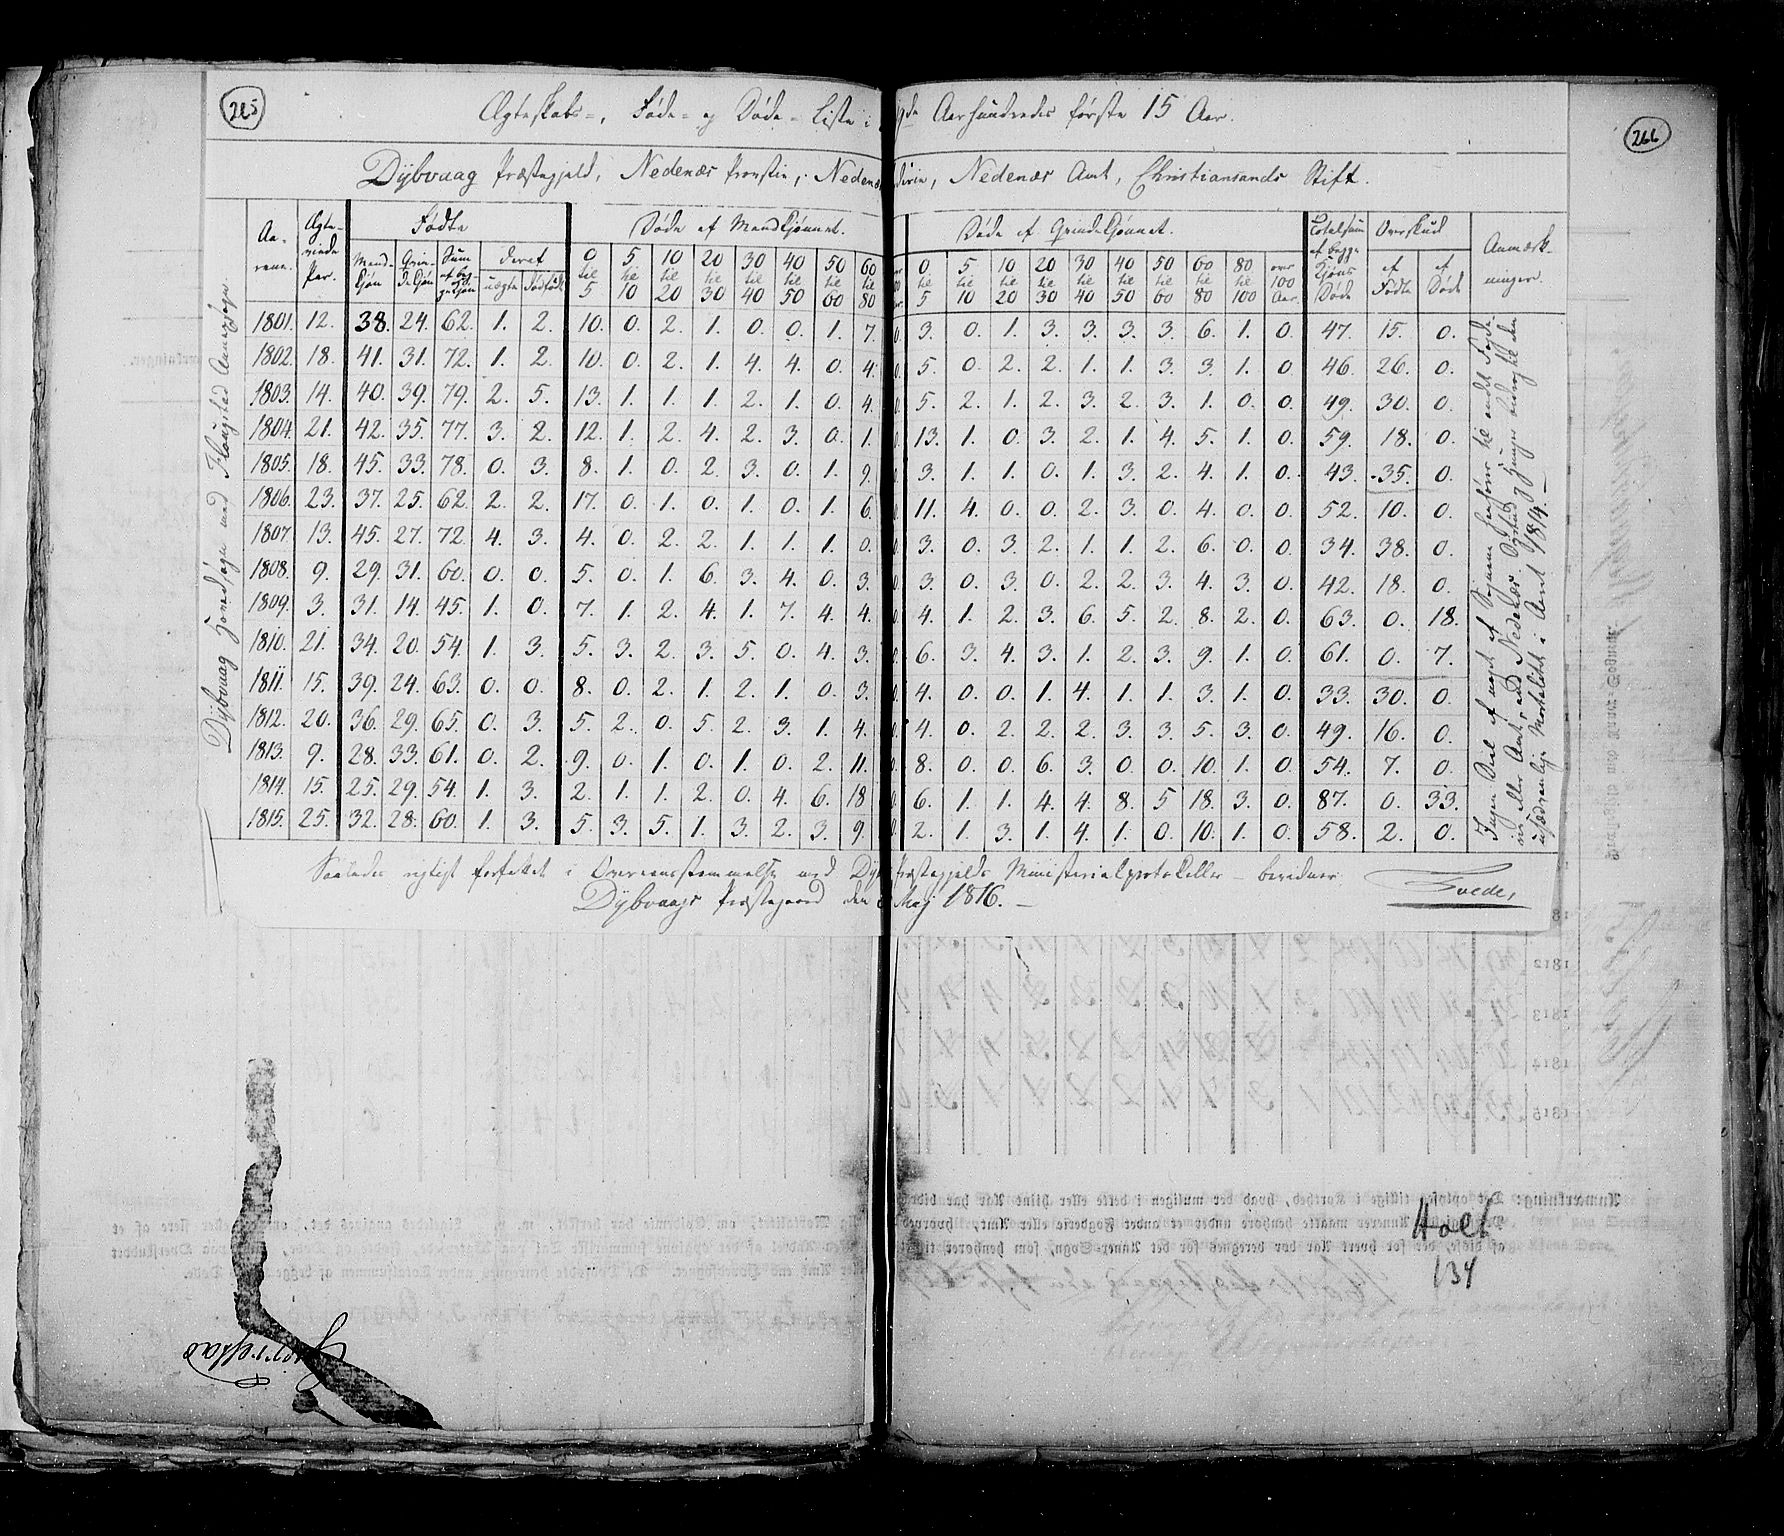 265
266
Ægteskabs-, Føde- og Døde-Liste i 19de Aarhundredes første 15 Aar.
Dÿbvaag Præstegjeld, Nedenæs Provstie, Nedenæs Amt, Christiansands Stift.
Dÿbvaag Hovedsogn med Annexsogn
Aarene. Ægteviede Par. Fødte Døde af Mandkjønnet. Døde af Qvindekjønnet. Totalsum af begge Kjøns Døde Overskud Anmærkninger.
Mandkjøn Qvindekjøn Sum af begge Kjøn deraf 0 til 5 5 til 10 10 til 20 20 til 30 30 til 40 40 til 50 50 til 60 60 til 80 0 til 5 5 til 10 10 til 20 20 til 30 30 til 40 40 til 50 50 til 60 60 til 80 80 til 100 over 100 Aar. af Fødte af Døde
uægte Dødfødte
1801. 12. 38. 24. 62. 1. 2. 10. 0. 2. 1. 0. 0. 1. 7. 0. 3. 0. 1. 3. 3. 3. 3. 6. 1. 0. 47. 15. 0.
1802. 18. 41. 31. 72. 1. 2. 10. 0. 2. 1. 4. 4. 0. 4. 0. 5. 0. 2. 2. 1. 1. 3. 3. 1. 0 46. 26. 0.
1803. 14. 40. 39. 79. 2. 5. 13. 1. 1. 1. 2. 1. 0 4. 0. 5. 2. 1. 2. 3. 2. 3. 1. 0. 0. 49. 30. 0.
1804. 21. 42. 35. 77. 3. 2. 12. 1. 2. 4. 2. 3. 0. 1. 0. 13. 1. 0. 3. 2. 1. 4. 5. 1. 0. 59. 18. 0.
1805. 18. 45. 33. 78. 0. 3. 8. 1. 0. 2. 3. 0. 1. 9. 0. 3. 1. 1. 0. 1. 3. 2. 4. 1. 0. 43. 35. 0.
1806. 23. 37. 25. 62. 2. 2. 17. 0. 1. 0. 1. 0. 1. 6. 0. 11. 4. 0. 0. 2. 3. 0. 4. 0. 0. 52. 10. 0.
1807. 13. 45. 27. 72. 4. 3. 4. 0. 2. 2. 1. 1. 1. 0. 0. 3. 0. 3. 2. 1. 1. 2. 6. 0. 0. 34. 38. 0.
1808. 9. 29. 31. 60. 0. 0. 5. 0. 1. 6. 3. 4. 0. 3. 0. 3. 0. 3. 0. 2. 2. 3. 4. 3. 0. 42. 18. 0.
1809. 3. 31. 14. 45. 1. 0. 7. 1. 2. 4. 1. 7. 4. 4. 0. 4. 1. 2. 3. 6. 5. 2. 8. 2. 0. 63. 0. 18.
1810. 21. 34. 20. 54. 1. 3. 5. 3. 2. 3. 5. 0. 4. 3. 0. 6. 3. 4. 3. 1. 2. 3. 9. 1. 0. 61. 0. 7.
1811. 15. 39. 24. 63. 0. 0. 8. 0. 2. 1. 2. 1. 0. 3. 0. 4. 0. 0. 1. 4. 1. 1. 3. 1. 0. 33. 30. 0.
1812. 20. 36. 29. 65. 0. 3. 5. 2. 0. 5. 2. 3. 1. 4. 0. 4. 0. 2. 2. 2. 3. 3. 5. 3. 0. 49. 16. 0.
1813. 9. 28. 33. 61. 0. 2. 9. 0. 1. 0. 1. 0. 2. 11. 0. 8. 0. 0. 6. 3. 0. 0. 10. 1. 0. 54. 7. 0.
1814. 15. 25. 29. 54. 1. 3. 2. 1. 1. 2. 0. 4. 6. 18 0. 6. 1. 1. 4. 4. 8. 5 18. 3. 0. 87. 0. 33.
1815. 25. 32. 28. 60. 1. 3. 5. 3. 5. 1. 3. 2. 3. 9. 0. 2. 1. 3. 1. 4. 1. 0. 10. 1. 0. 58. 2. 0.
Ingen Deel af noget af Sognene henhører til andet Fogderie eller Amt, end Nedenæs. den usædvanlige Mortalitet i Aaret 1814.
Saaledes rigtigt forfattet i Overeensstemmelse med Dÿbvaag Præstegjelds Ministerialprotokoller bevidner
Dÿbvaags Præstegaard den Maj 1816.
Tvede,
Holt
134
Gjerrestad